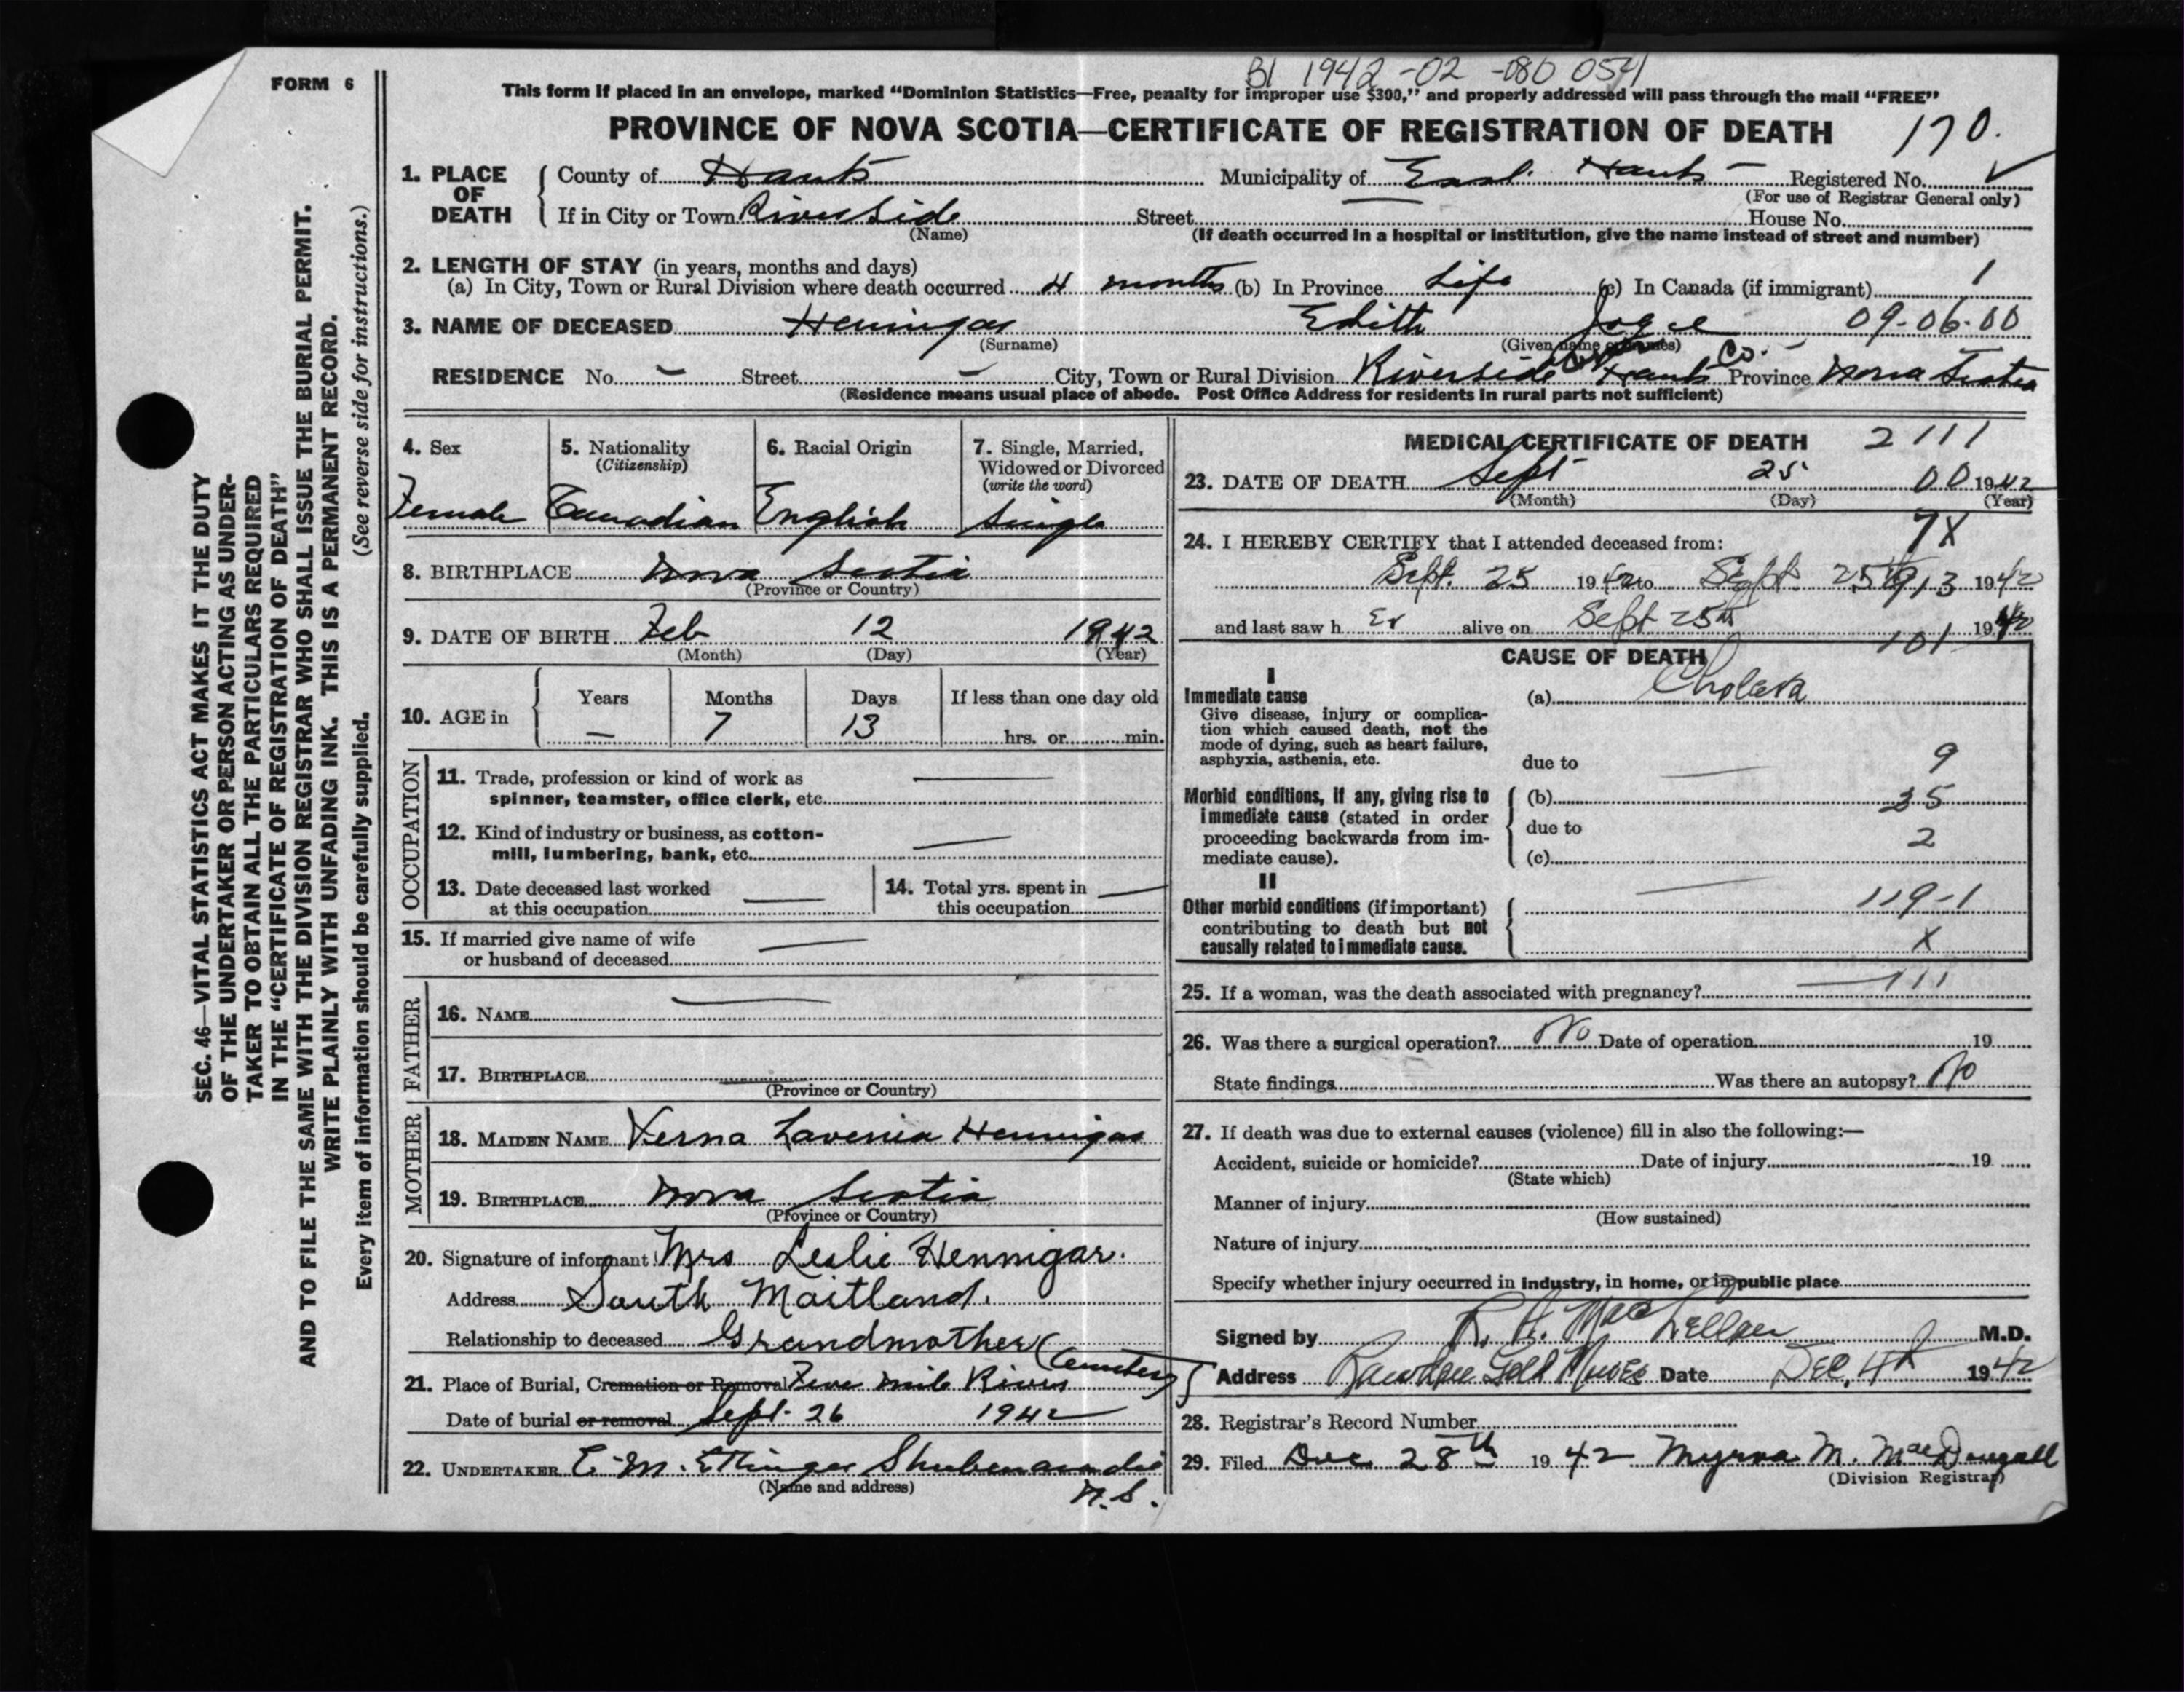 BI 1942-02-080 054
FORM 6
This form if placed in an envelope, marked “Dominion Statistics—Free, penalty for improper use $300,” and properly addressed will pass through the mail “FREE”
PROVINCE OF NOVA SCOTIA—CERTIFICATE OF REGISTRATION OF DEATH 170.
SEC. 46—VITAL STATISTICS ACT MAKES IT THE DUTY
OF THE UNDERTAKER OR PERSON ACTING AS UNDER-
TAKER TO OBTAIN ALL THE PARTICULARS REQUIRED
IN THE “CERTIFICATE OF REGISTRATION OF DEATH”
AND TO FILE THE SAME WITH THE DIVISION REGISTRAR WHO SHALL ISSUE THE BURIAL PERMIT.
WRITE PLAINLY WITH UNFADING INK. THIS IS A PERMANENT RECORD.
Every item of information should be carefully supplied. (See reverse side for instructions.)
1. PLACE OF DEATH
County of Hants Municipality of East Hants Registered No.
(For use of Registrar General only)
If in City or Town Riverside Street House No.
(Name) (If death occurred in a hospital or institution, give the name instead of street and number)
2. LENGTH OF STAY (in years, months and days)
(a) In City, Town or Rural Division where death occurred 4 months (b) In Province Life (c) In Canada (if immigrant) 1
3. NAME OF DECEASED Hennigar Edith Joyce 09-06-00
(Surname) (Given name or names)
RESIDENCE No. — Street — City, Town or Rural Division Riverside Hants Co. Province Nova Scotia
(Residence means usual place of abode. Post Office Address for residents in rural parts not sufficient)
4. Sex
Female
5. Nationality
(Citizenship)
Canadian
6. Racial Origin
English
7. Single, Married,
Widowed or Divorced
(write the word)
Single
8. BIRTHPLACE Nova Scotia
(Province or Country)
9. DATE OF BIRTH Feb 12 1942
(Month) (Day) (Year)
10. AGE in
Years Months Days If less than one day old
— 7 13 hrs. or min.
OCCUPATION
11. Trade, profession or kind of work as
spinner, teamster, office clerk, etc. —
12. Kind of industry or business, as cotton-
mill, lumbering, bank, etc. —
13. Date deceased last worked
at this occupation —
14. Total yrs. spent in
this occupation —
15. If married give name of wife
or husband of deceased —
FATHER
16. NAME —
17. BIRTHPLACE —
(Province or Country)
MOTHER
18. MAIDEN NAME Verna Lavenia Hennigar
19. BIRTHPLACE Nova Scotia
(Province or Country)
20. Signature of informant Mrs Leslie Hennigar.
Address South Maitland.
Relationship to deceased Grandmother
21. Place of Burial, Cremation or Removal Five Mile River (Cemetery)
Date of burial or removal Sept. 26 1942
22. UNDERTAKER E. M. Ettinger Shubenacadie
(Name and address) N.S.
MEDICAL CERTIFICATE OF DEATH 2111
23. DATE OF DEATH Sept 25 00 1942
(Month) (Day) (Year)
7X
24. I HEREBY CERTIFY that I attended deceased from:
Sept. 25 1942 to Sept. 25th 913 1942
and last saw h er alive on Sept 25th 1942
101
CAUSE OF DEATH
I
Immediate cause
Give disease, injury or complica-
tion which caused death, not the
mode of dying, such as heart failure,
asphyxia, asthenia, etc.
(a) Cholera
due to — 9
Morbid conditions, if any, giving rise to
immediate cause (stated in order
proceeding backwards from im-
mediate cause).
(b) 35
due to 2
(c)
II
Other morbid conditions (if important)
contributing to death but not
causally related to immediate cause.
— 119-1
X
25. If a woman, was the death associated with pregnancy? — 111
26. Was there a surgical operation? No Date of operation 19
State findings Was there an autopsy? No
27. If death was due to external causes (violence) fill in also the following:—
Accident, suicide or homicide? Date of injury 19
(State which)
Manner of injury
(How sustained)
Nature of injury
Specify whether injury occurred in industry, in home, or in public place
Signed by R. A. MacLellan M.D.
Address Rawdon Gold Mines Date Dec. 4th 1942
28. Registrar’s Record Number
29. Filed Dec 28th 1942 Myrna M. MacDougall
(Division Registrar)